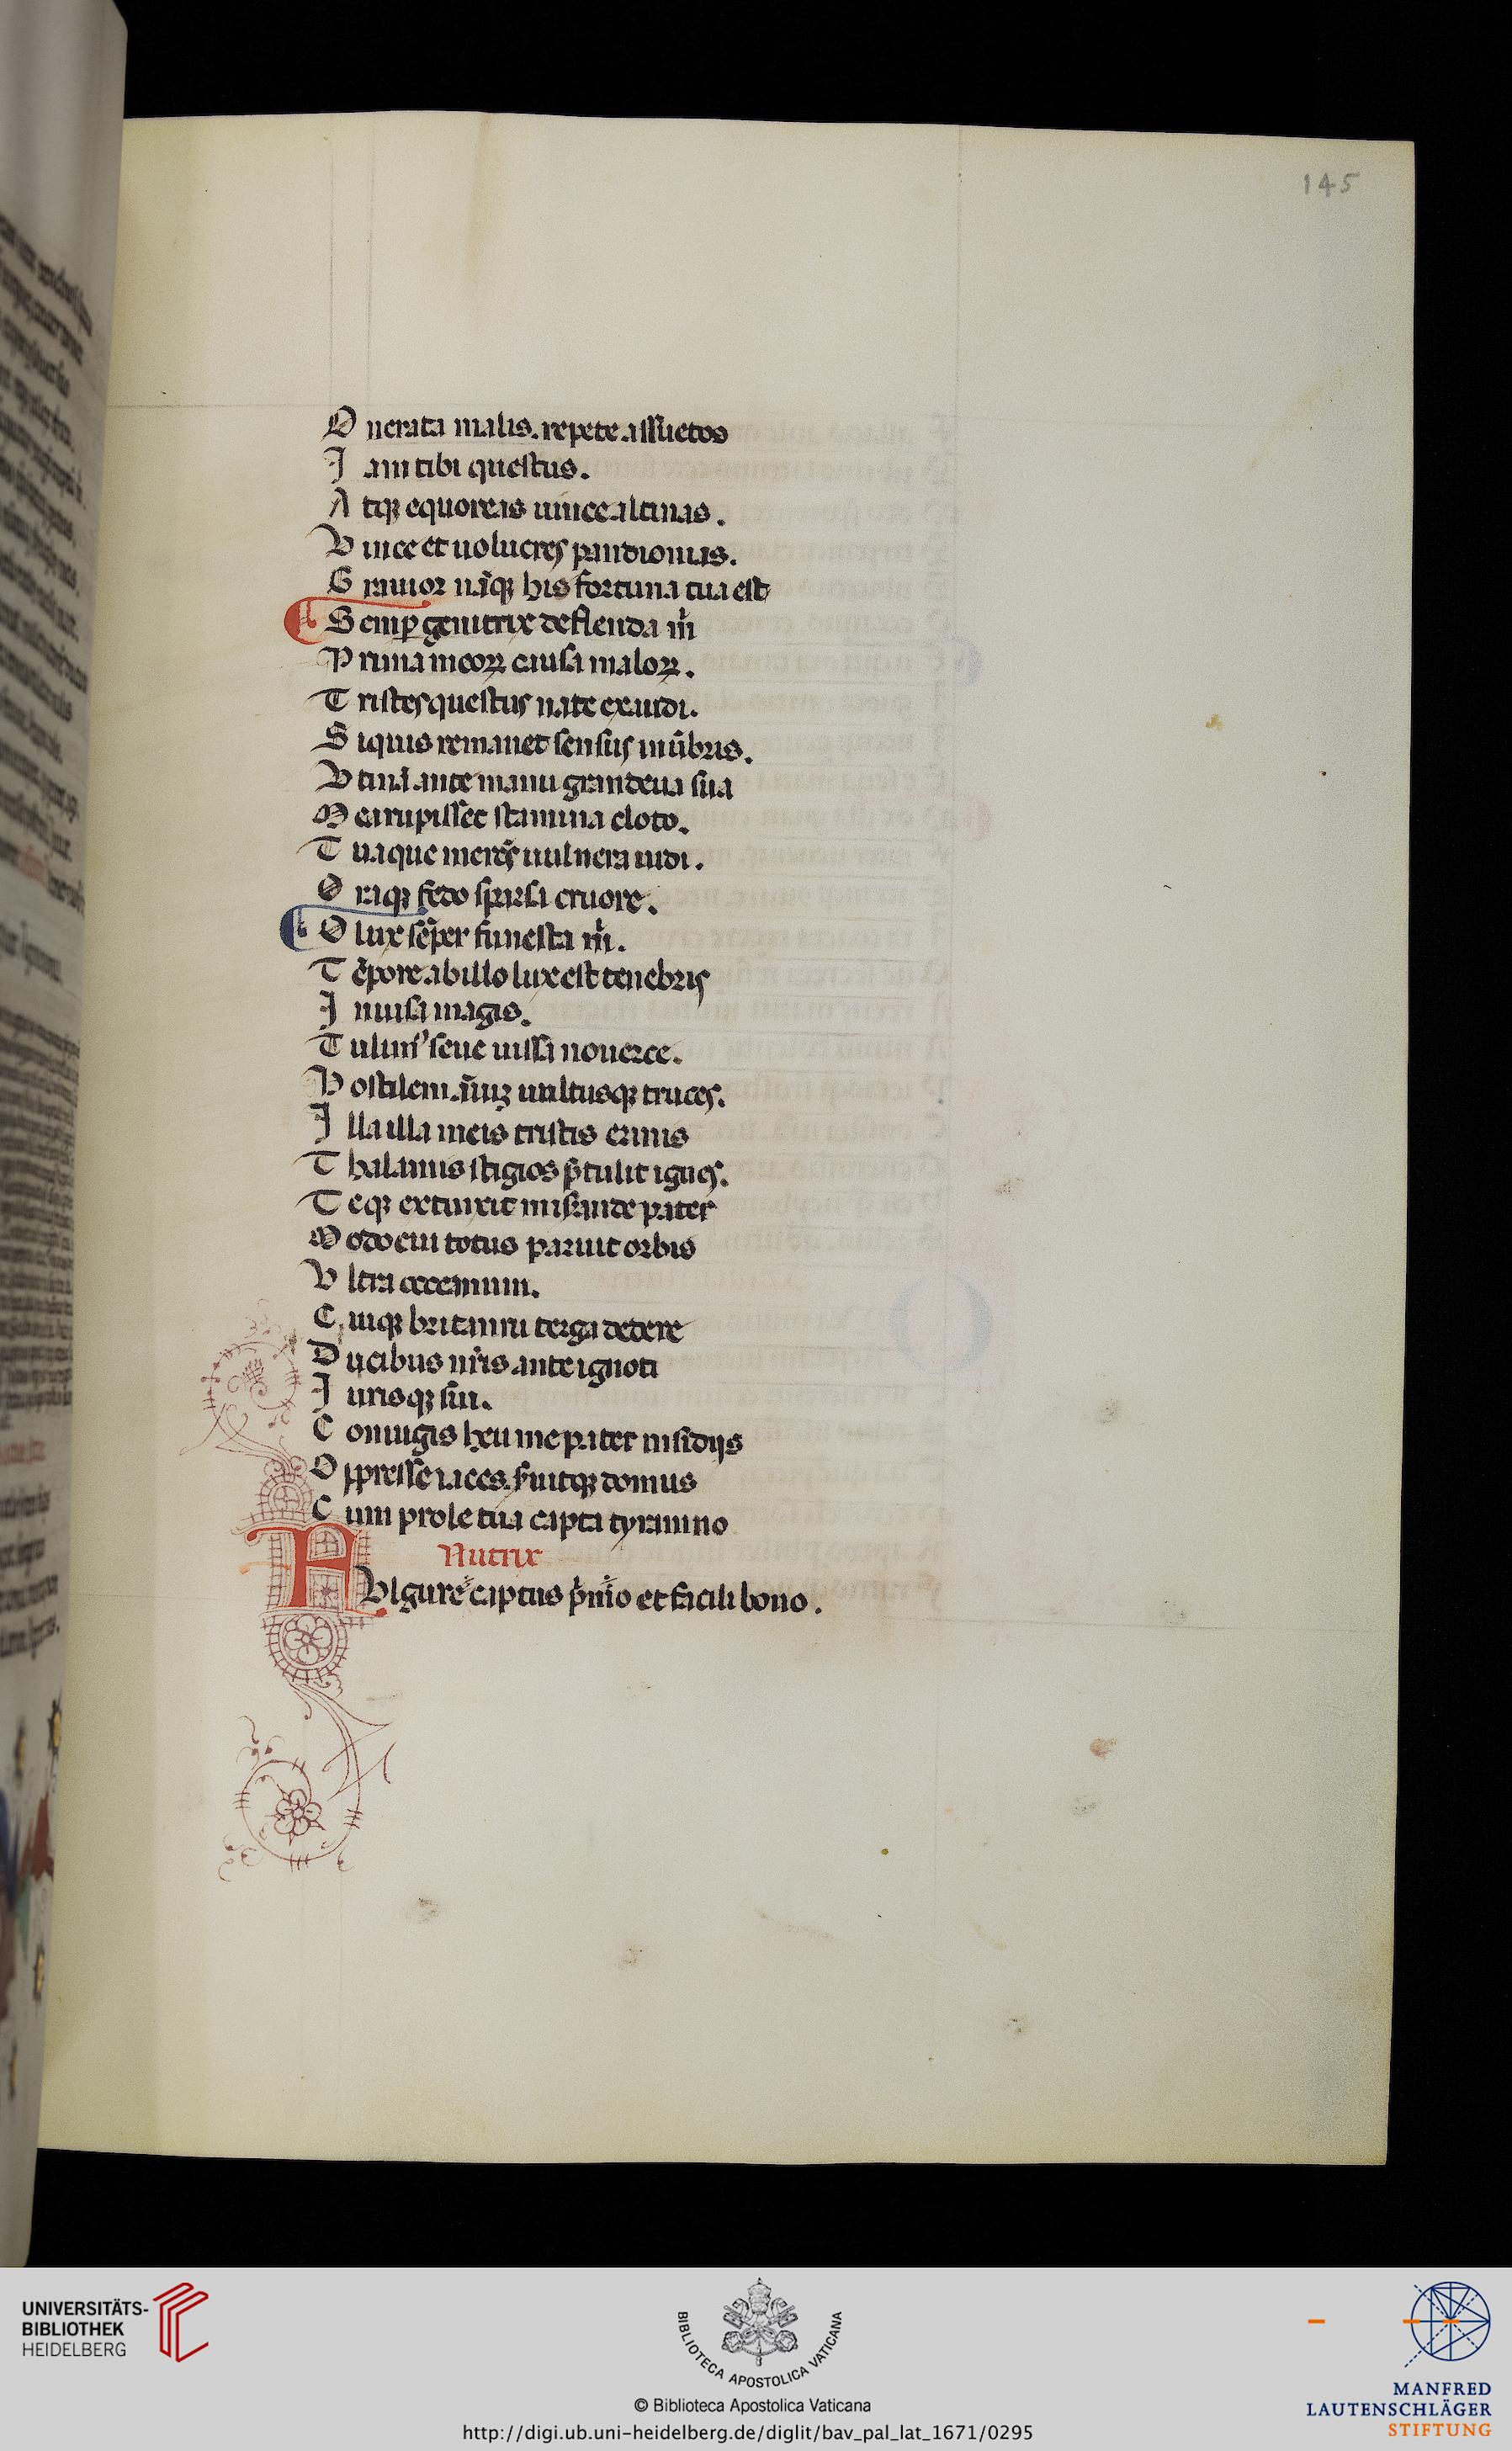 145
Onerata malis. repete assuetos
Iam tibi questus.
Atqꝫ equoreas uince altinas.
Vince et uolucres pandionias.
Grauior nāqꝫ his fortuna tua est
Semꝑ genitrix deflenda m̍
Prima meoꝝ causa maloꝝ.
Tristes questus nate exaudi.
Siquis remanet sensus inūbris.
Vtinā ante manu grandeua sua
Mea rupisset stamina cloto.
Tuaque merēs uulnera uidi.
Oraqꝫ fedo sparsa cruore.
O lux sēper funesta m̍.
Tēpore ab illo lux est tenebris
Inuisa magis.
Tulimꝰ seue iussa nouerce.
Hostilem aīuꝫ uultusqꝫ truces.
Illa illa meis tristis erinis
Thalamis stigios p̄tulit ignes.
Teqꝫ extinxit mis̄ande pater
Modo cui totus paruit orbis
Vltra occeanum.
Cuiqꝫ britanni terga dedere
Ducibus nr̄is ante ignoti
Iurisqꝫ sui.
Coniugis heu me pater insidijs
Oppresse iaces. s̄uitqꝫ domus
Cum prole tua capta tyranno
Nutrix
FVlgure captus p̍mo et facili bono.
UNIVERSITÄTS-
BIBLIOTHEK
HEIDELBERG
BIBLIOTECA APOSTOLICA VATICANA
© Biblioteca Apostolica Vaticana
http://digi.ub.uni-heidelberg.de/diglit/bav_pal_lat_1671/0295
MANFRED
LAUTENSCHLÄGER
STIFTUNG